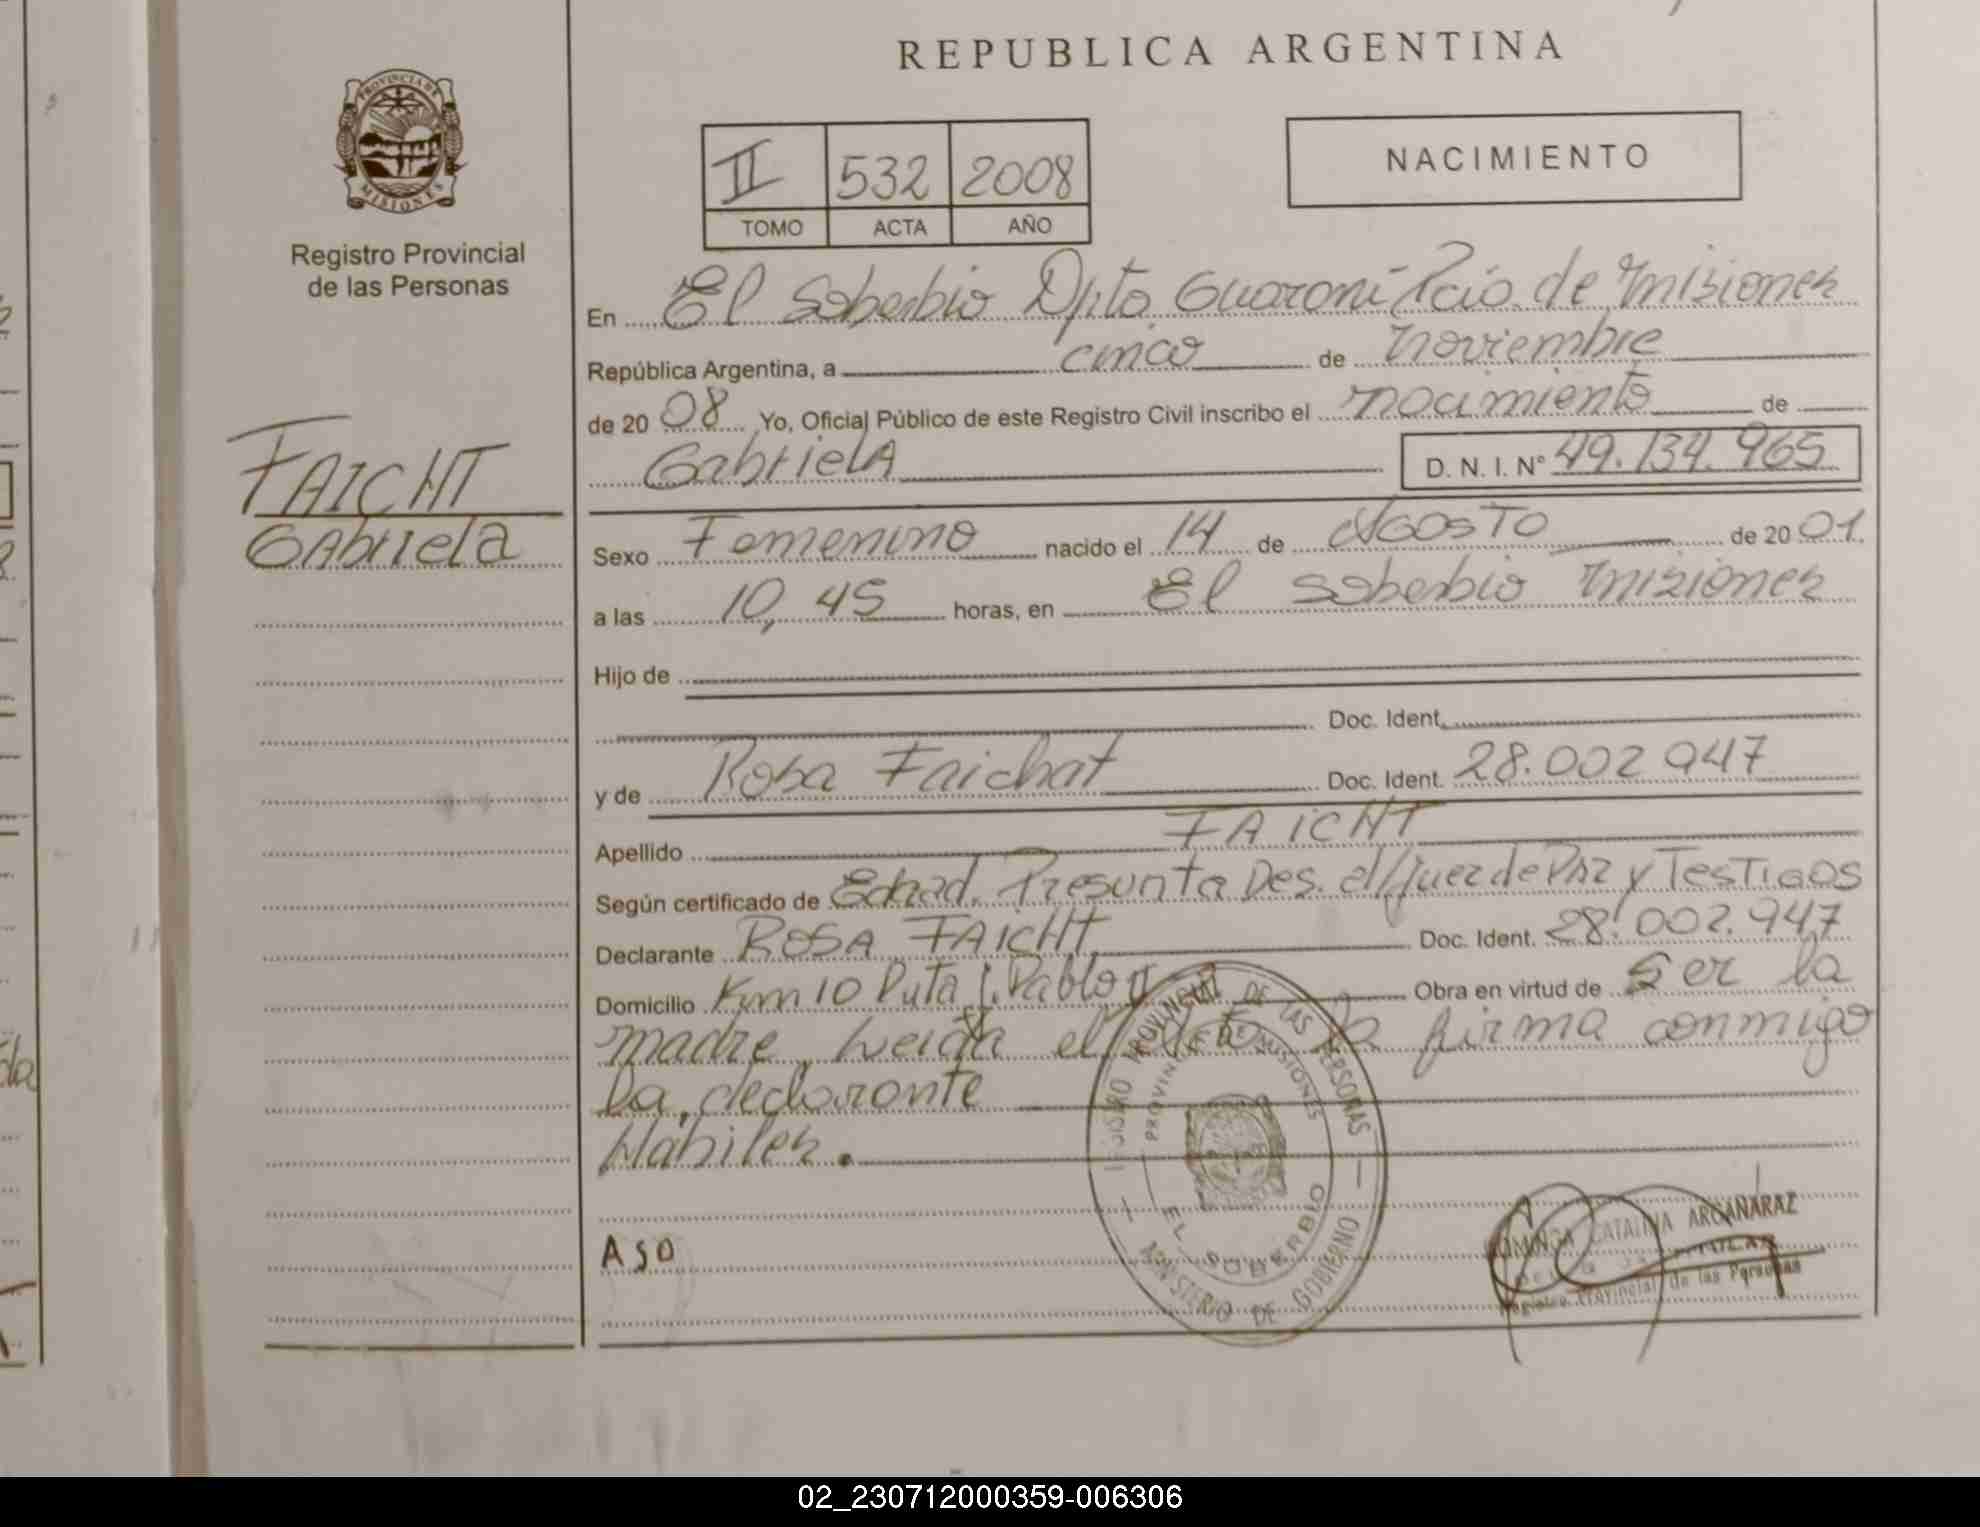 REPUBLICA ARGENTINA
PROVINCIA DE
MISIONES
Registro Provincial
de las Personas
II 532 2008
TOMO ACTA AÑO
NACIMIENTO
En El Soberbio Dpto Guaraní Pcia. de Misiones
República Argentina, a cinco de noviembre
de 20 08 Yo, Oficial Público de este Registro Civil inscribo el nacimiento de
Gabriela D. N. I. N° 49.134.965
FAICHT
Gabriela
Sexo Femenino nacido el 14 de AGOSTO de 20 01.
a las 10,45 horas, en El Soberbio Misiones
Hijo de
Doc. Ident.
y de Rosa Faichat Doc. Ident. 28.002 947
Apellido FAICHT
Según certificado de Edad. Presunta Des. el Juez de Paz y Testigos
Declarante ROSA FAICHT Doc. Ident. 28.002.947
Domicilio Km 10 Ruta J. Pablo II Obra en virtud de ser la
madre, Leída el acta la firma conmigo
La, declarante
Hábiles.
REGISTRO PROVINCIAL DE LAS PERSONAS
PROVINCIA DE MISIONES
EL SOBERBIO
MINISTERIO DE GOBIERNO
ASO
DOMINGA CATALINA ARGAÑARAZ
TITULAR
Registro Provincial de las Personas
02_230712000359-006306